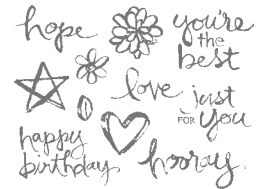 hope
you're
the
best
love
just
FOR you
happy
birthday
hooray.